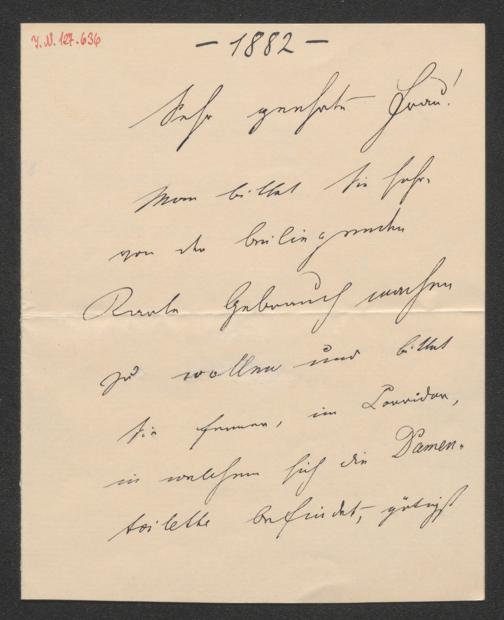 J.N. 127.636
– 1882 –
Sehr geehrte Frau!
Man bittet Sie sehr,
von der beiliegenden
Karte Gebrauch machen
zu wollen und bittet
Sie ferner, im Corridor,
in welchem sich die Damen-
toilette befindet, gütigst